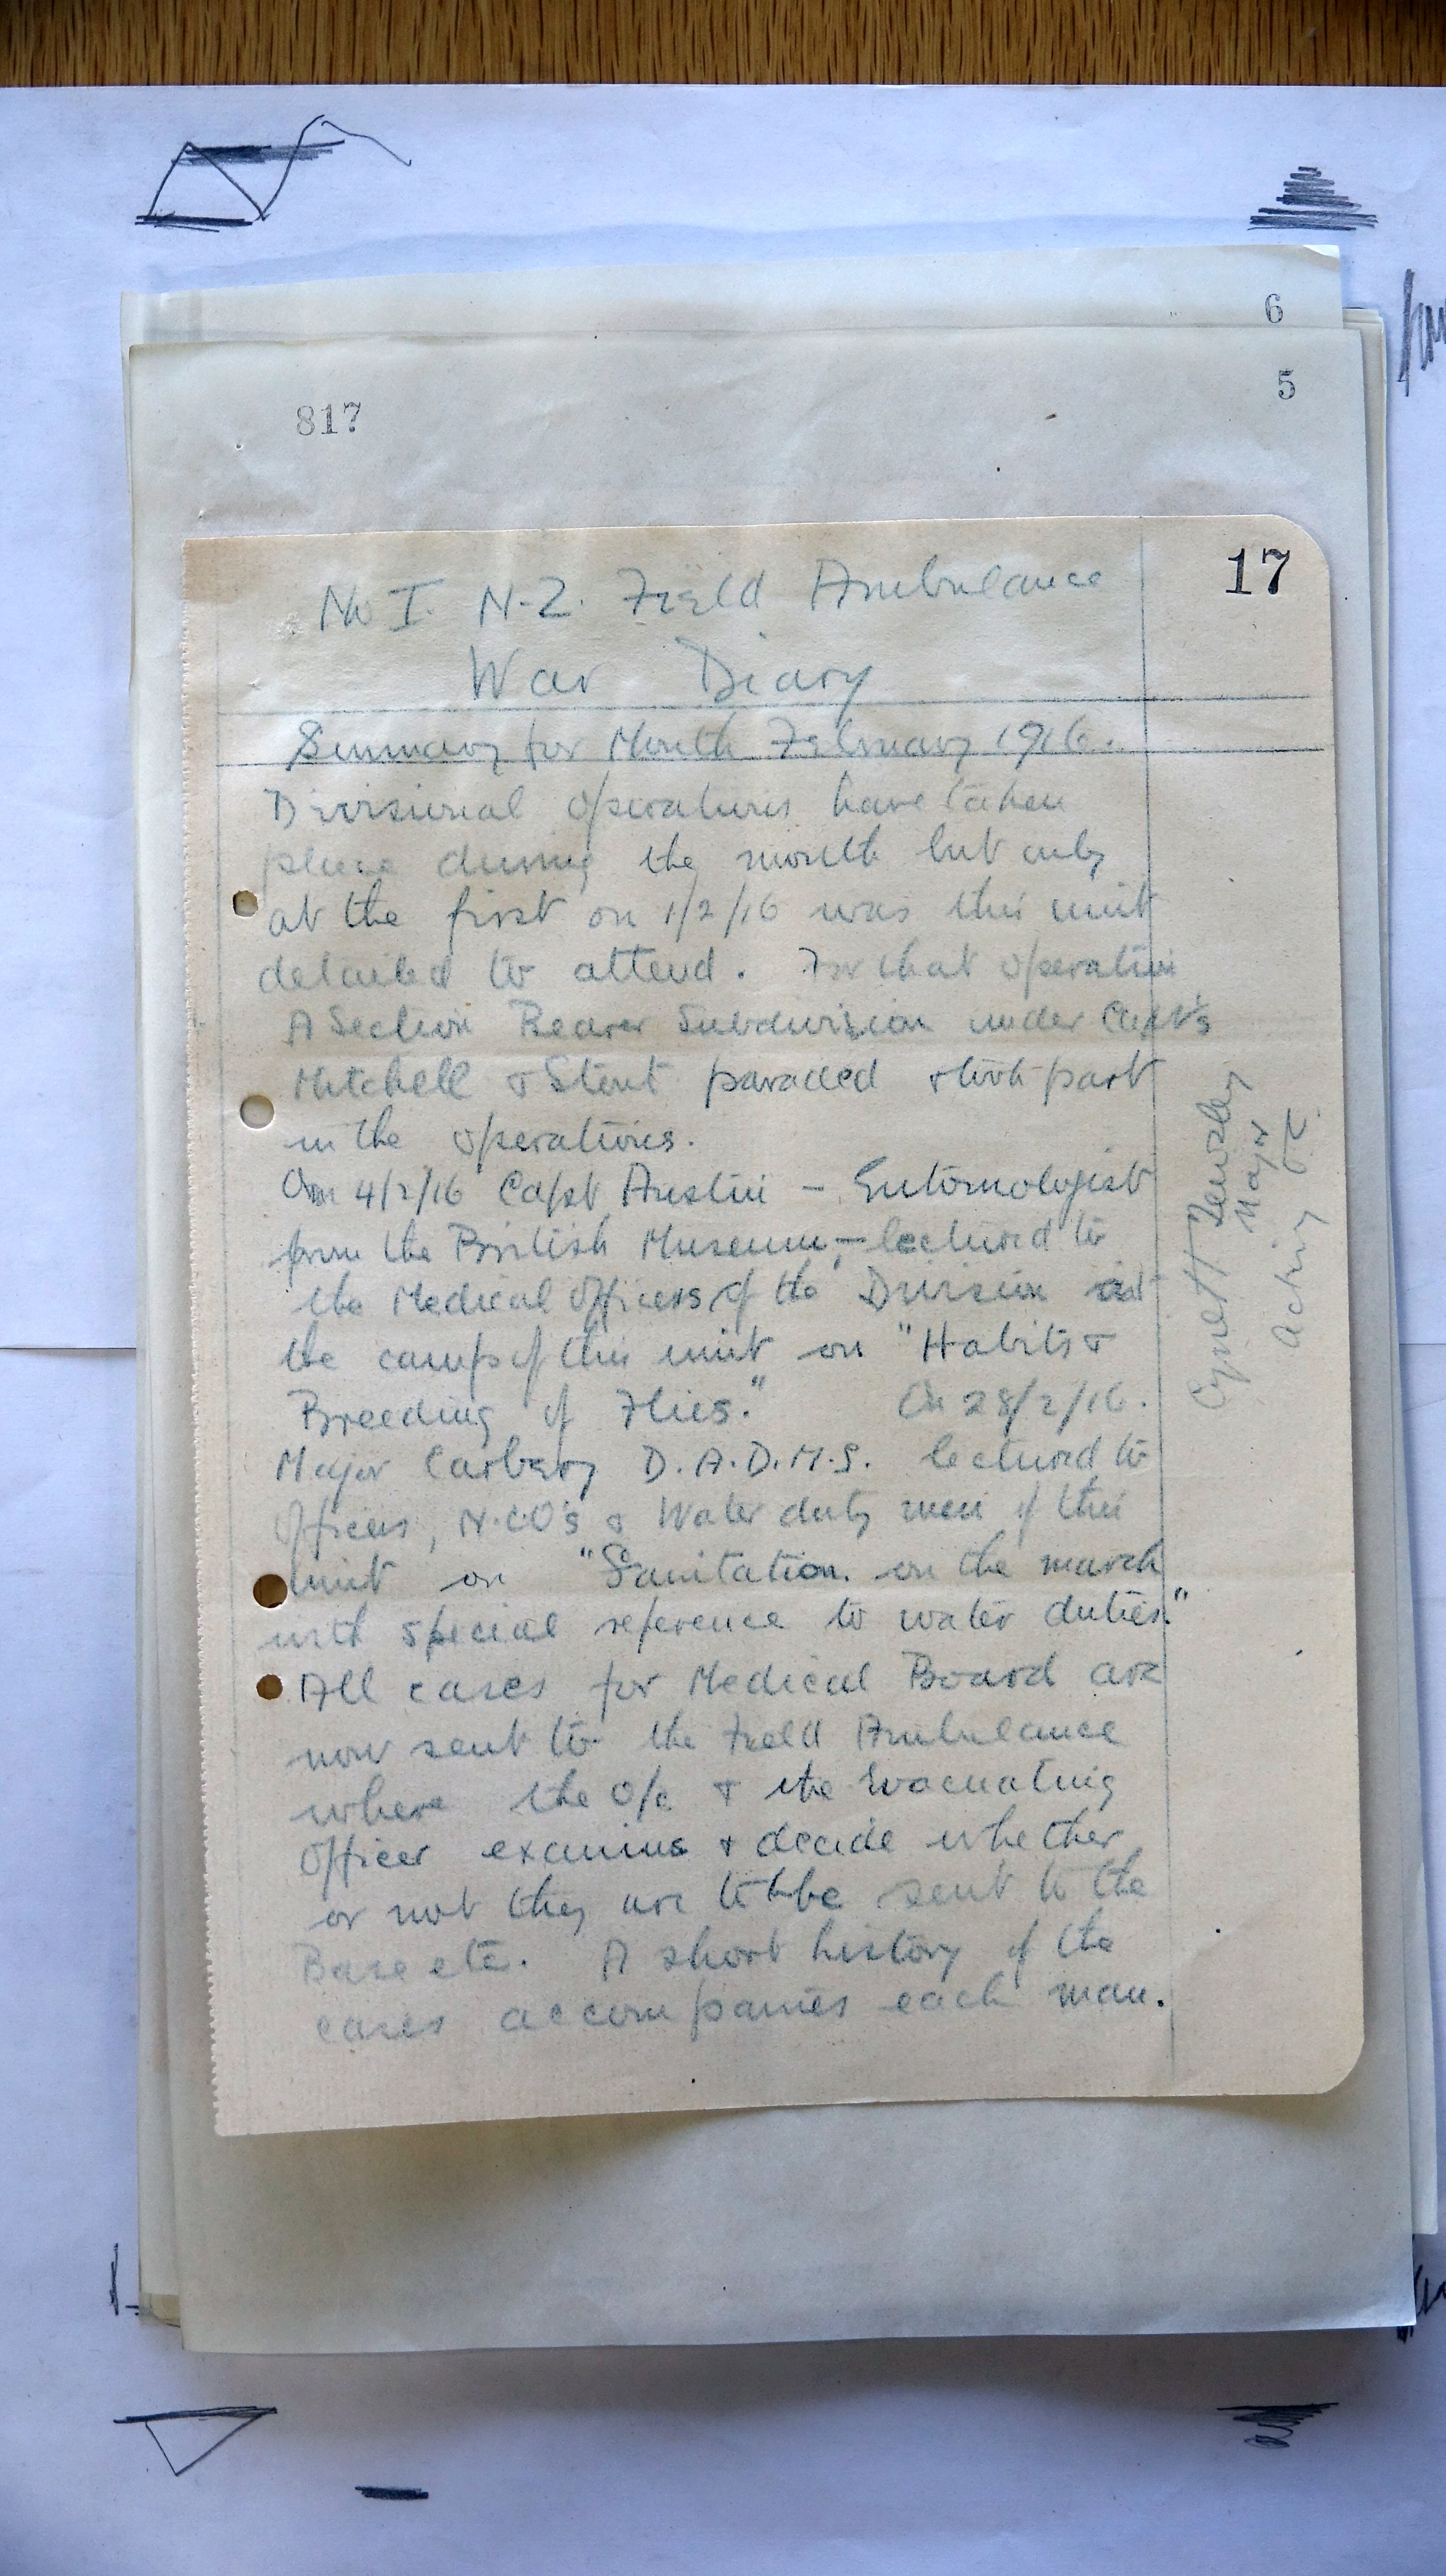 6
5
817
17
No I. N.Z. Field Ambulance
War Diary
Summary for Month February 1916.
Divisional operations have taken
place during the month but only
at the first on 1/2/16 was this unit
detailed to attend. For that operation
A Section Bearer Subdivision under Capt's
Mitchell & Stout paraded & took part
in the operations.
On 4/2/16 Capt Austin – Entomologist
from the British Museum, – lectured to
the Medical Officers of the Division at
the camp of this unit on "Habits &
Breeding of Flies." On 28/2/16.
Major Carbery D.A.D.M.S. lectured to
Officers, N.C.O's & Water duty men of this
unit on "Sanitation on the march
with special reference to water duties."
All cases for Medical Board are
now sent to the Field Ambulance
where the O/c & the Evacuating
Officer examine & decide whether
or not they are to be sent to the
Base etc. A short history of the
cases accompanies each man.
Major
Acting